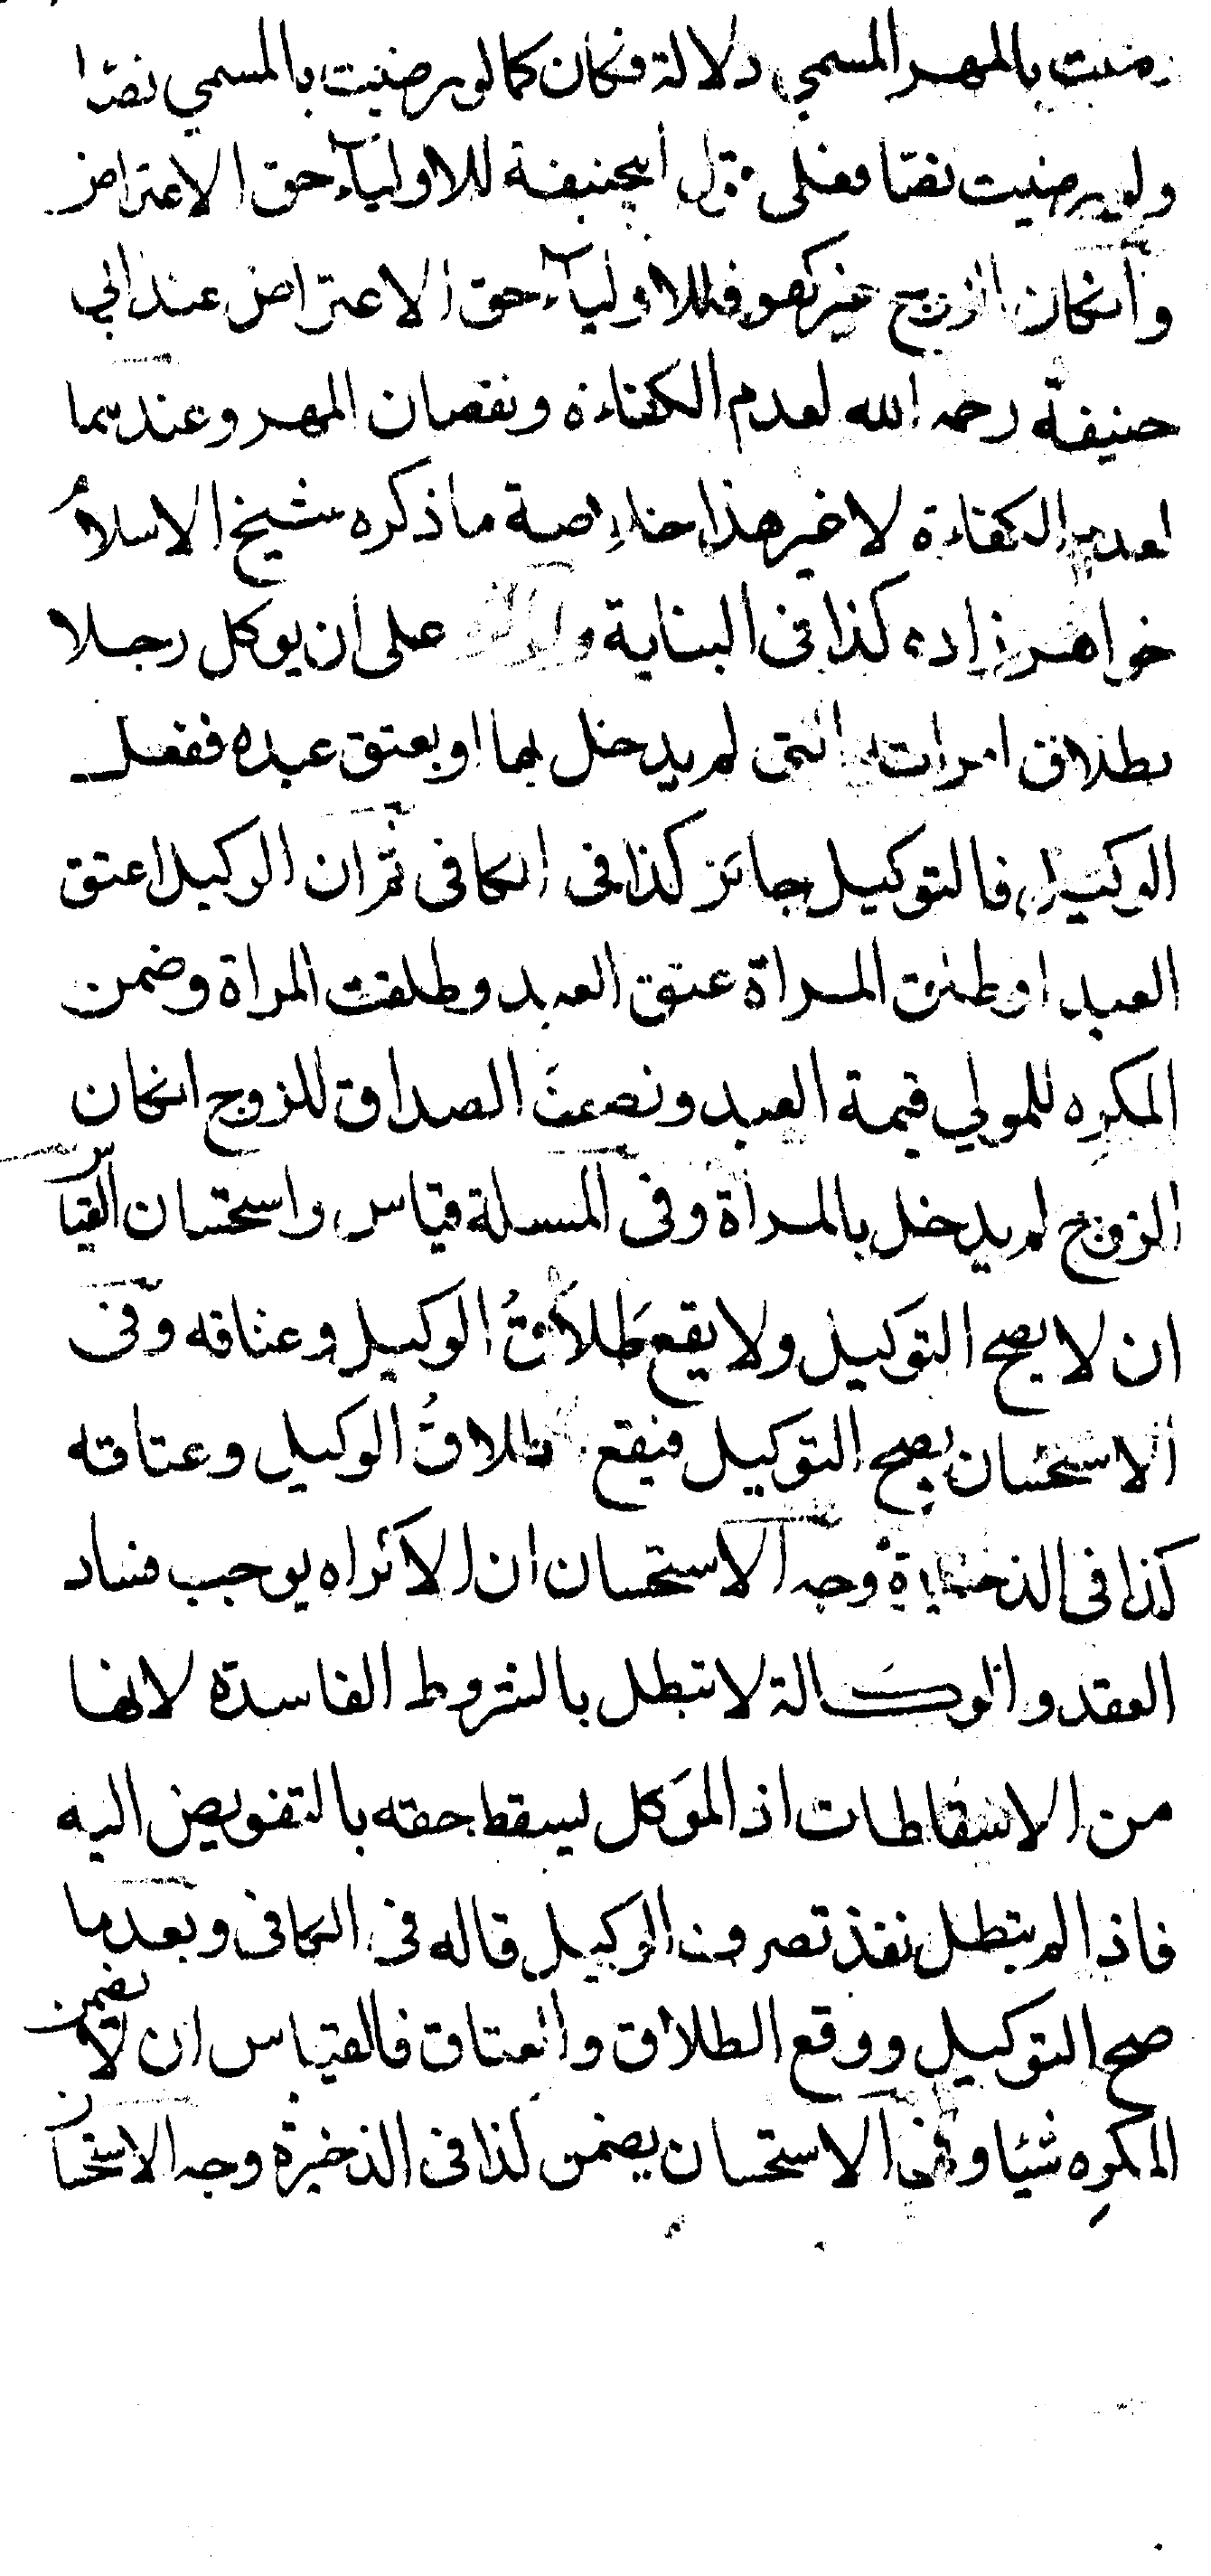 رضيت بالمهر المسمي دلالة فكان كما لو رضيت بالمسمي نصا
ولو رضيت نصا فعلى قول ابيحنيفة للاوليآء حق الاعتراض
وانكان الزوج غير كفو فللاوليآء حق الاعتراض عند ابي
حنيفة رحمه الله لعدم الكفاءة ونقصان المهر وعندهما
لعدم الكفاءة لا غير هذا خلاصة ما ذكره شيخ الاسلام
خواهر زاده كذا فى البناية ولو اكره على ان يوكل رجلا
بطلاق امراته التى لم يدخل بها او بعتق عبده ففعل
الوكيل فالتوكيل جائز كذا فى الكافى ثم ان الوكيل اعتق
العبد او طلق المراة عتق العبد وطلقت المراة وضمن
المكرِه للمولي قيمة العبد ونصف الصداق للزوج انكان
الزوج لم يدخل بالمراة وفى المسلة قياس واستحسان القياس
ان لا يصح التوكيل ولا يقع طلاقُ الوكيل وعتاقه وفى
الاستحسان يصح التوكيل فيقع طلاقُ الوكيل وعتاقه
كذا فى الذخيرة وجه الاستحسان ان الاكراه يوجب فساد
العقد والوكالة لا تبطل بالشروط الفاسدة لانها
من الاسقاطات اذ الموَكل يسقط حقه بالتفويض اليه
فاذا لم يتطل نفذ تصرف الوكيل قاله فى الكافى وبعدما
صح التوكيل ووقع الطلاق والعتاق فالقياس ان لا يضمن
المكرِه شيئا وفى الاستحسان يضمن كذا فى الذخيرة وجه الاستحسان